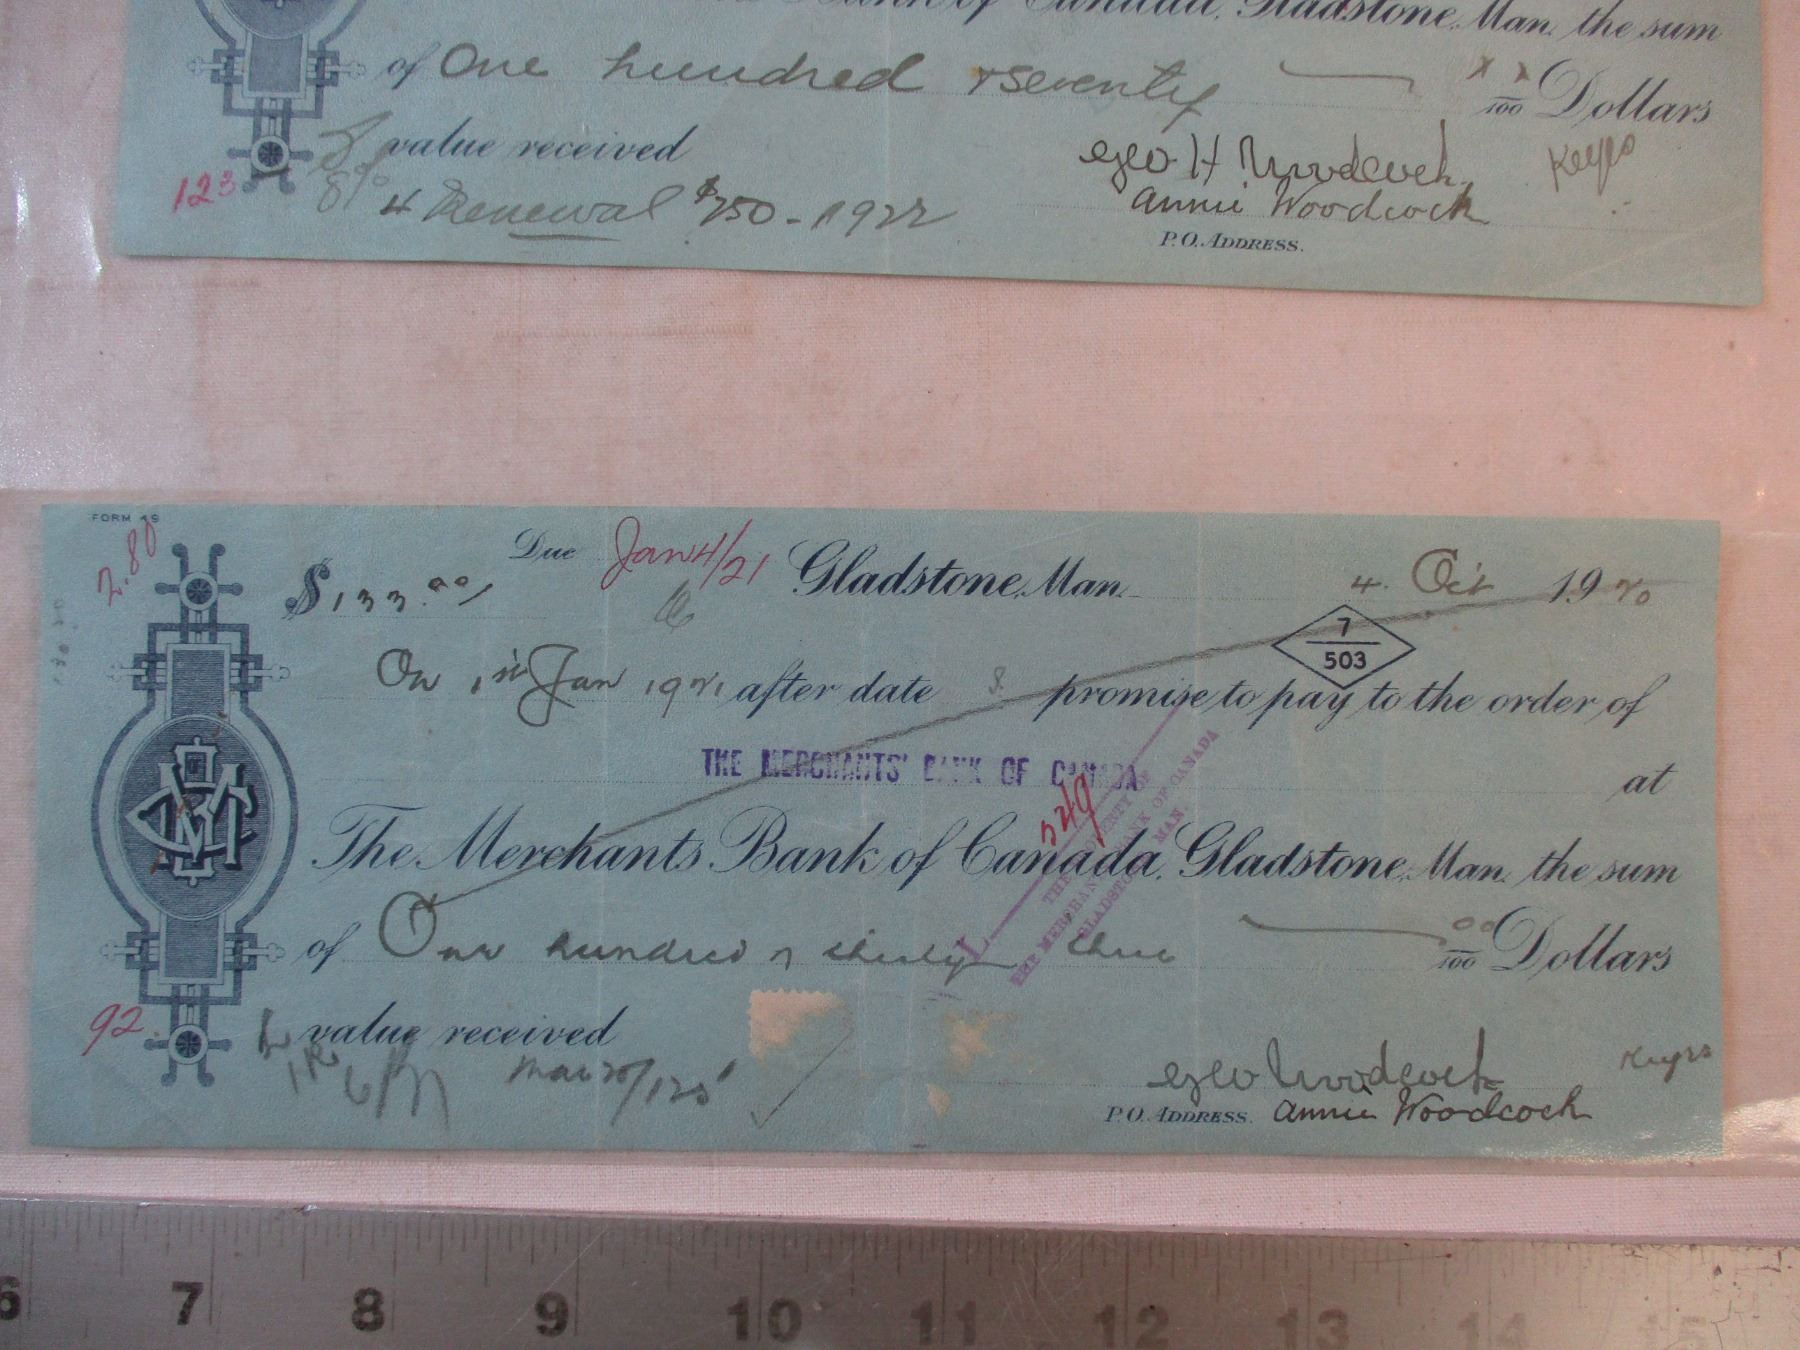 Bank of Canada, Gladstone, Man. the sum
of One hundred & seventy xx/100 Dollars
value received
Geo H Woodcock Keyes
123 8% 4 Renewal $250 - 1922 Annie Woodcock
P.O. ADDRESS.
FORM 19
2.80
Due Jan 4/21 Gladstone, Man. 4 Oct 1920
$133.00/
7
503
On 1st Jan 1921 after date I promise to pay to the order of
THE MERCHANTS' BANK OF CANADA at
549
THE PROPERTY OF
THE MERCHANTS BANK OF CANADA
GLADSTONE MAN.
The Merchants Bank of Canada, Gladstone, Man. the sum
of One hundred & thirty three 00/100 Dollars
92. value received
Geo Woodcock Keyes
P.O. ADDRESS. Annie Woodcock
6 7 8 9 10 11 12 13 14 15